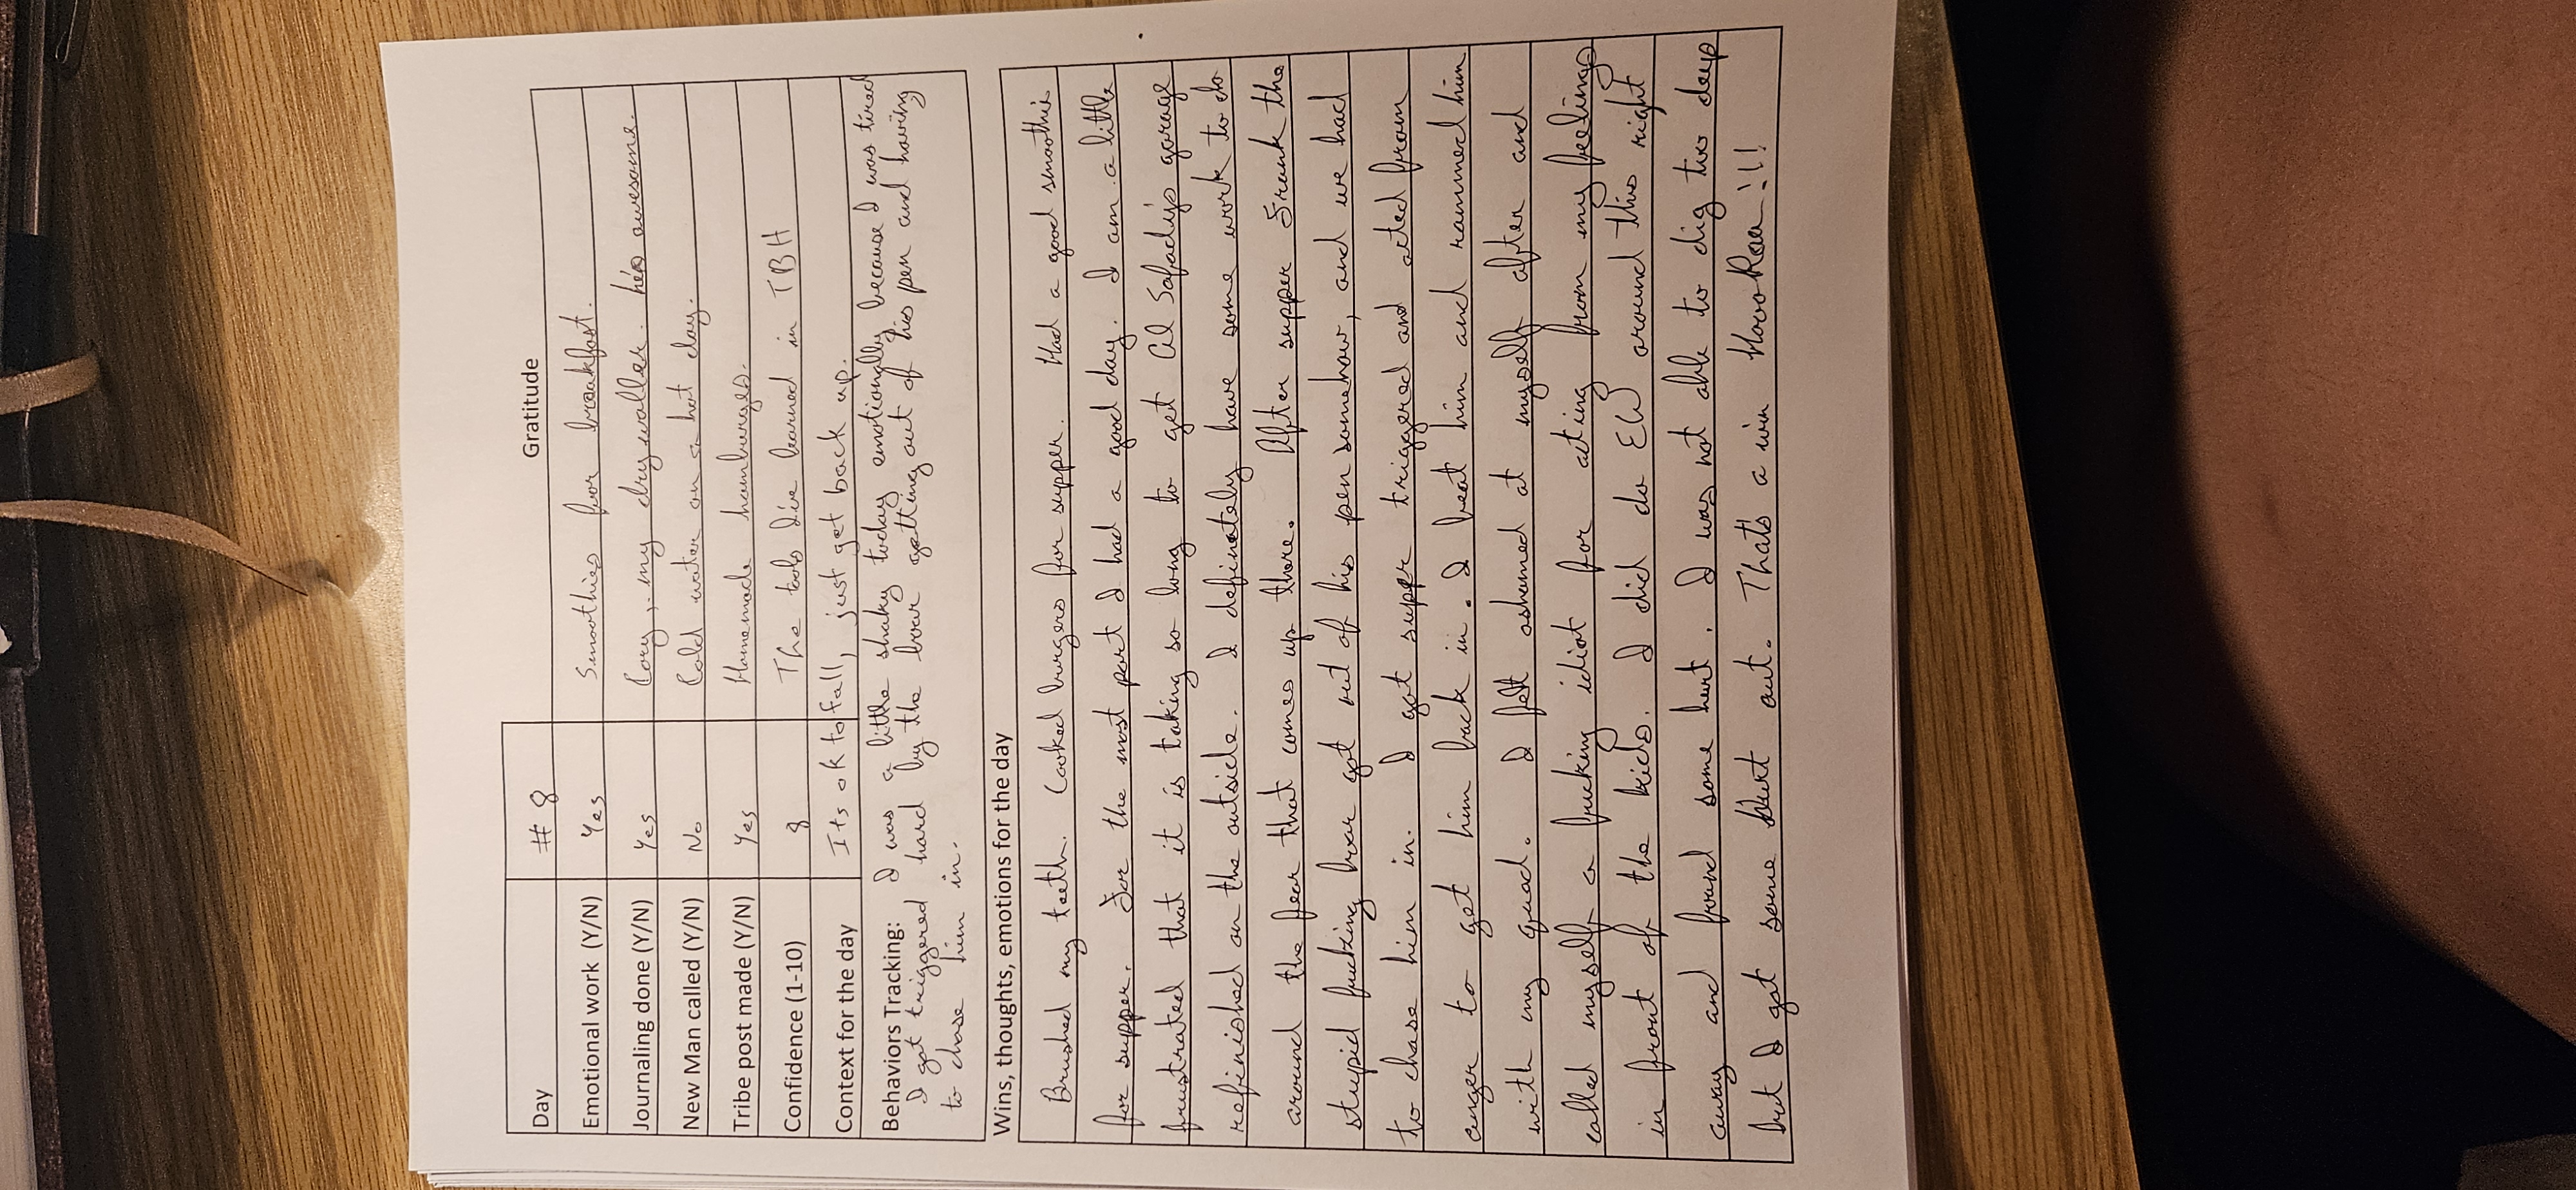 Day # 8 Gratitude
Emotional work (Y/N) Yes Smoothies for breakfast.
Journaling done (Y/N) Yes Cory, my drywaller. he's awesome.
New Man called (Y/N) No Cold water on a hot day.
Tribe post made (Y/N) Yes Homemade hamburgers.
Confidence (1-10) 8 The tools I've learned in TBH
Context for the day Its ok to fall, just get back up.
Behaviors Tracking: I was a little shaky today emotionally because I was tired
I got triggered hard by the boar getting out of his pen and having
to chase him in.
Wins, thoughts, emotions for the day
Brushed my teeth. Cooked burgers for supper. Had a good smoothie
for supper. For the most part I had a good day. I am a little
frustrated that it is taking so long to get Al Safady's garage
refinished on the outside. I definetely have some work to do
around the fear that comes up there. After supper Frank the
stupid fucking boar got out of his pen somehow, and we had
to chase him in. I got suppr triggered and acted from
anger to get him back in. I beat him and rammed him
with my quad. I felt ashamed at myself after and
called myself a fucking idiot for acting from my feelings
in front of the kids. I did do EW around this right
away and found some hurt. I was not able to dig two deep
but I got some hurt out. Thats a win HooRaa!!!